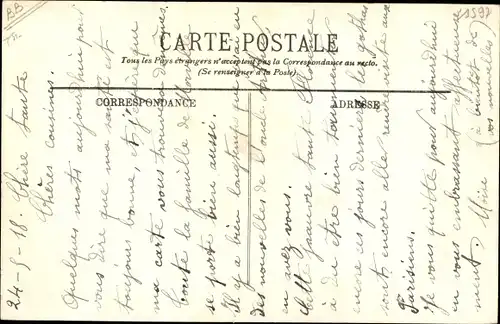 CARTE POSTALE
Tous les Pays étrangers n'acceptent pas la Correspondance au recto.
(Se renseigner à la Poste).
CORRESPONDANCE
ADRESSE
24-5-18. Chère tante
Chères cousines.
Quelques mots aujourd'hui pour
vous dire que ma santé est
toujours bonne, et j'espère que
ma carte vous trouvera de même
toute la famille de
se porte bien aussi.
Il y a bien longtemps que j'ai eu
des nouvelles de
en avez vous.
Cette pauvre tante
a du être bien tourmentée
encore ces jours derniers, les gothas
sont encore allés rendre visite aux
Parisiens.
Je vous quitte pour aujourd'hui
en vous embrassant affectueuse
ment.
(à bientôt de
vos nouvelles)
BB